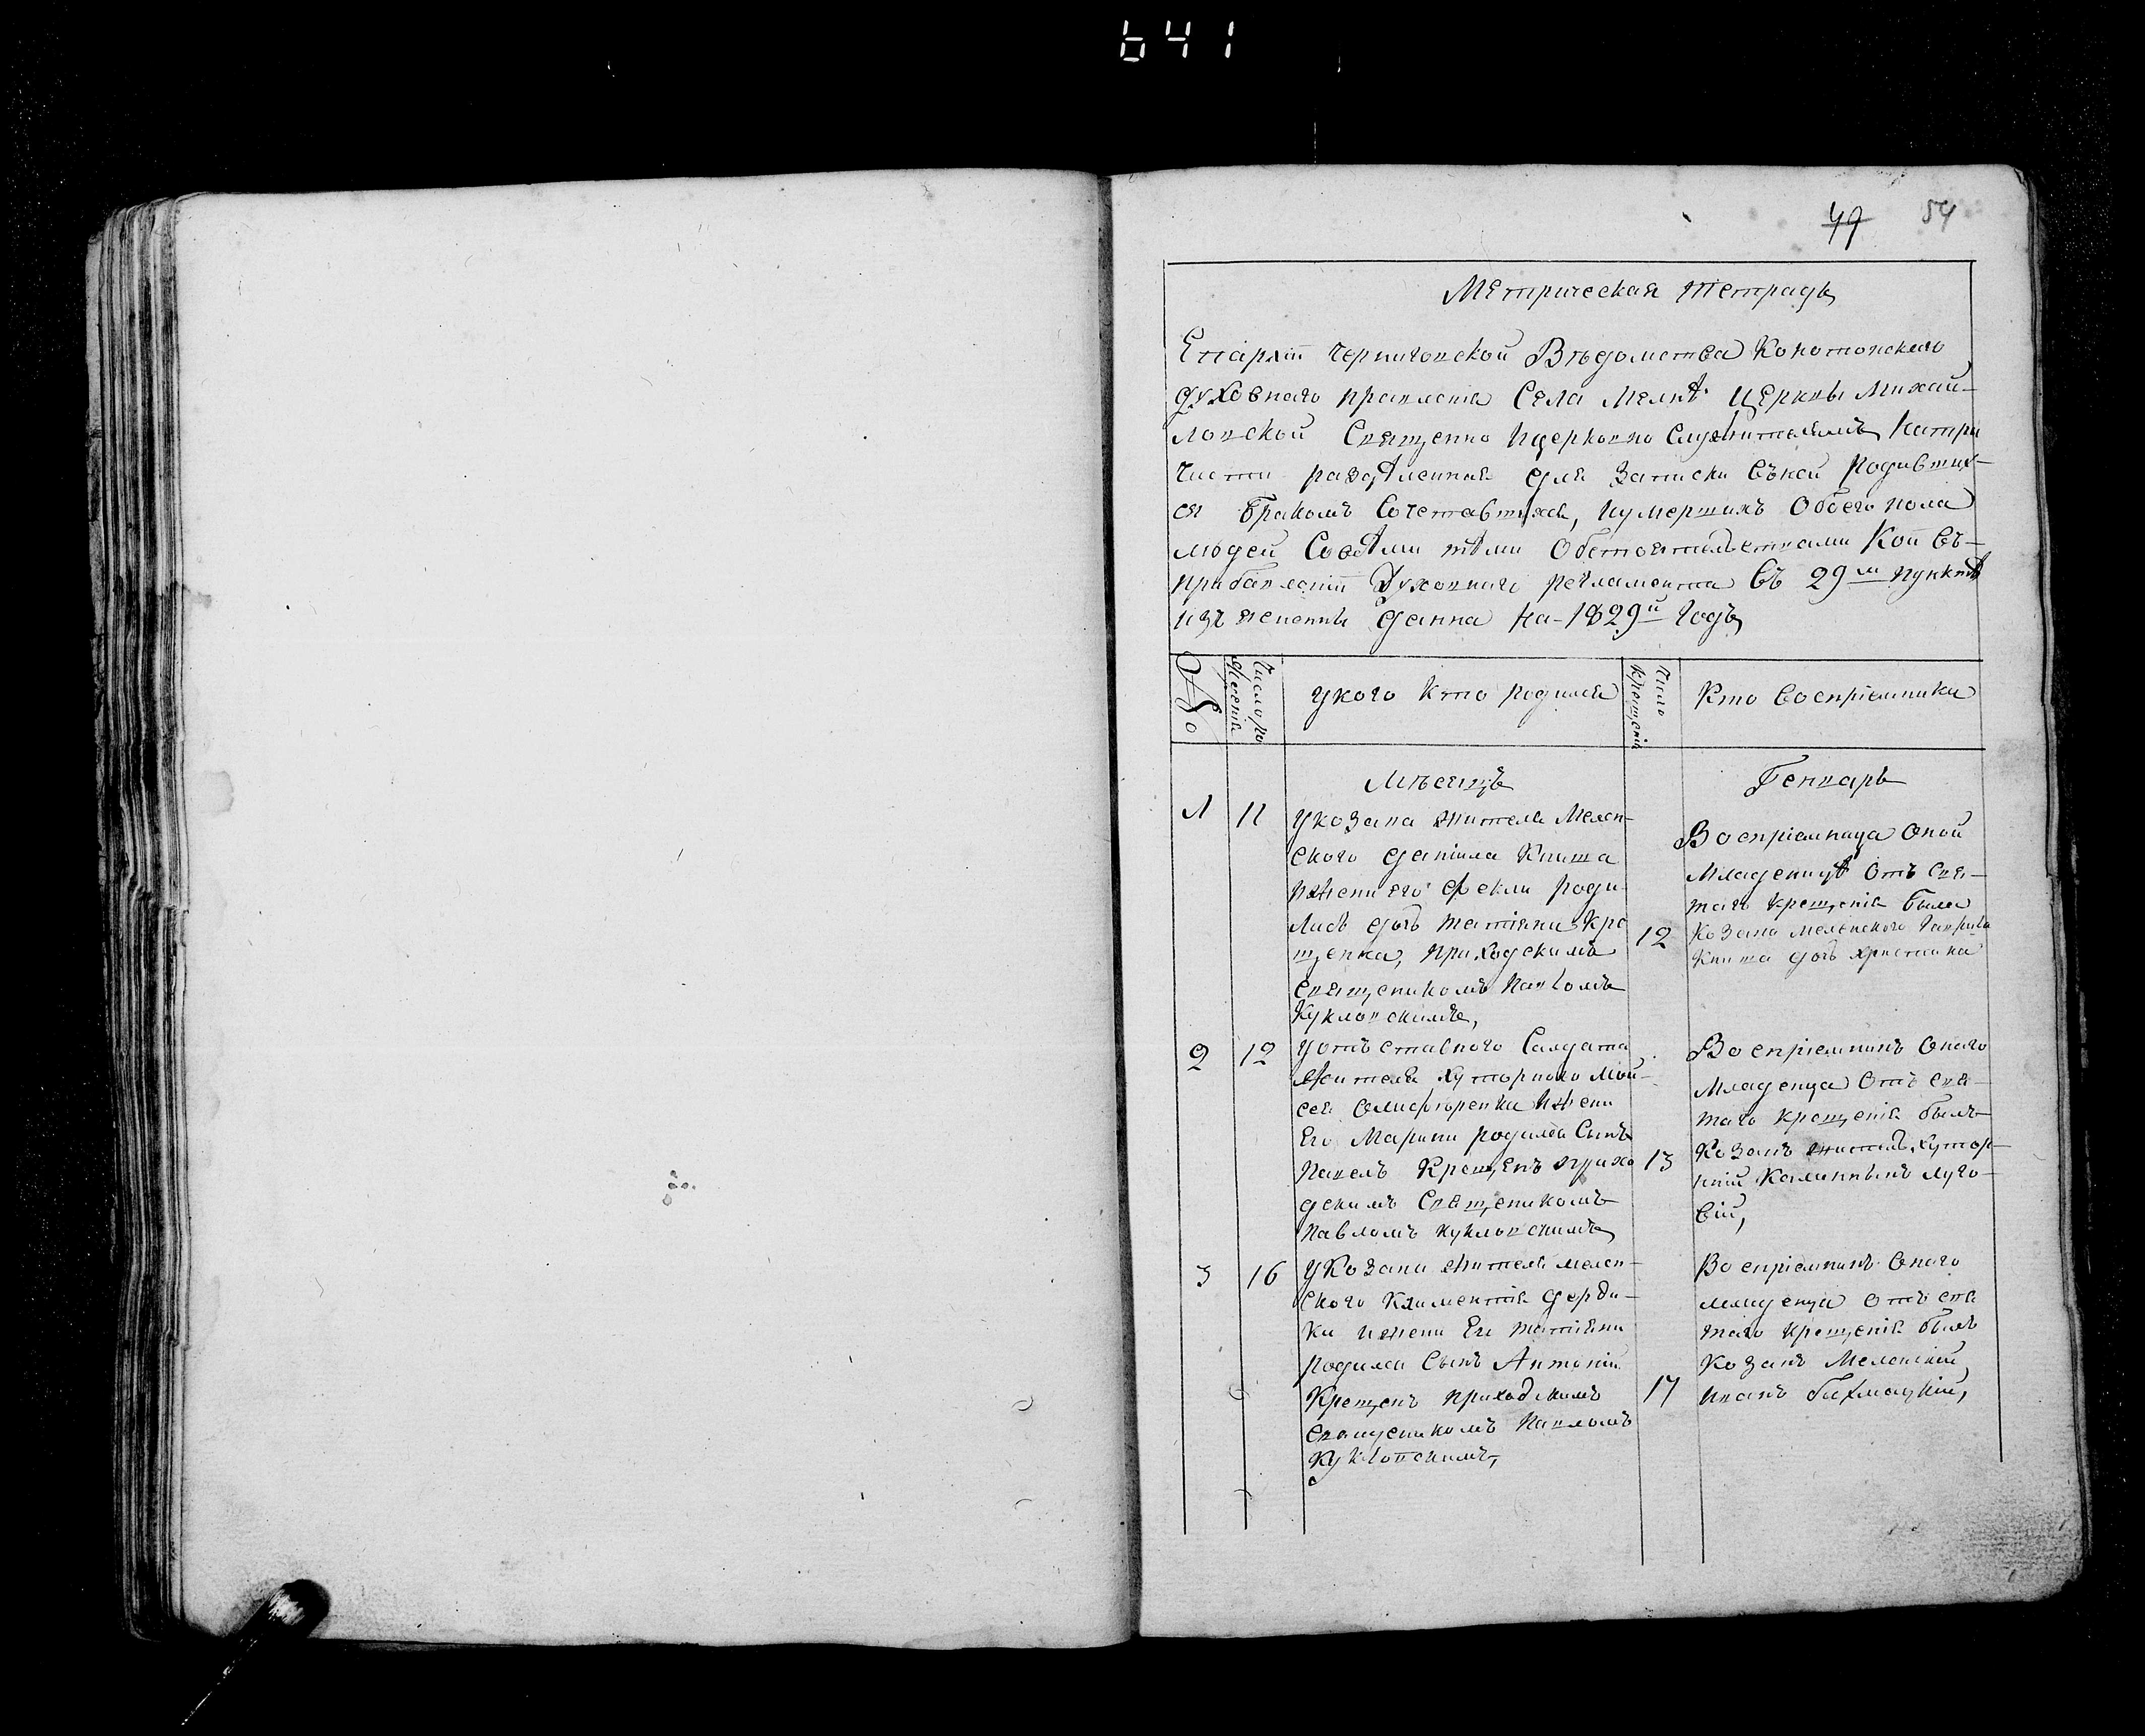 641
49 54
Метрическая тетрадь
Епархіи Черниговской Вѣдомства Конотопскаго
духовнаго правленія Села Мелнѣ Церквы Михай-
ловской Священно ицерковно служительямъ натри
части раздѣленная для Записки Въней Родивших-
ся Бракомъ Сочетавшихся, иумершихъ Обоего пола
людей Совсѣми тѣми Обстоятельствами Кои Въ-
прибавленіи Духовнаго регламента Въ 29м пунктѣ
изъяснены Данна На 1829й Годъ
№
Число рождения
Укого Кто родился
Число крещенія
Кто Воспріемники
Мѣсяцъ
Генварь
1 11 Укозака жителя Мелен-
ского Даніила Книша
ижены его Феклы роди
лась дочь Татіяна Кре
щенна, приходскимъ
Священикомъ Павломъ
Кукловскимъ,
12
Воспріемница Оной
Младеницѣ Отъ Свя-
таго Крещенія была
Козака Меленского Гаврила
Книша дочь Христина
2 12 Уотъставного Салдата
Жителя Хуторного Мой-
сея Ижены
Его Марины родился Сынъ
Павелъ Крещенъ прихо
дскимъ Священикомъ
Павломъ Кукловскимъ
13
Воспріемникъ Оного
Младенца Отъ Свя-
таго Крещенія былъ
Козакъ житель Хутор-
ний Луго-
вій,
3 16 УКозака жителя мелен-
ского Климентія Дерди-
ки ижены Его Татіяны
родился Сынъ Антоній
Крещенъ приходскимъ
Священикомъ Павломъ
Кукловскимъ,
17
Воспріемникъ Оного
младенца Отъ свя
таго Крещенія былъ
Козакъ Меленскій
Иванъ Бахмацкій,